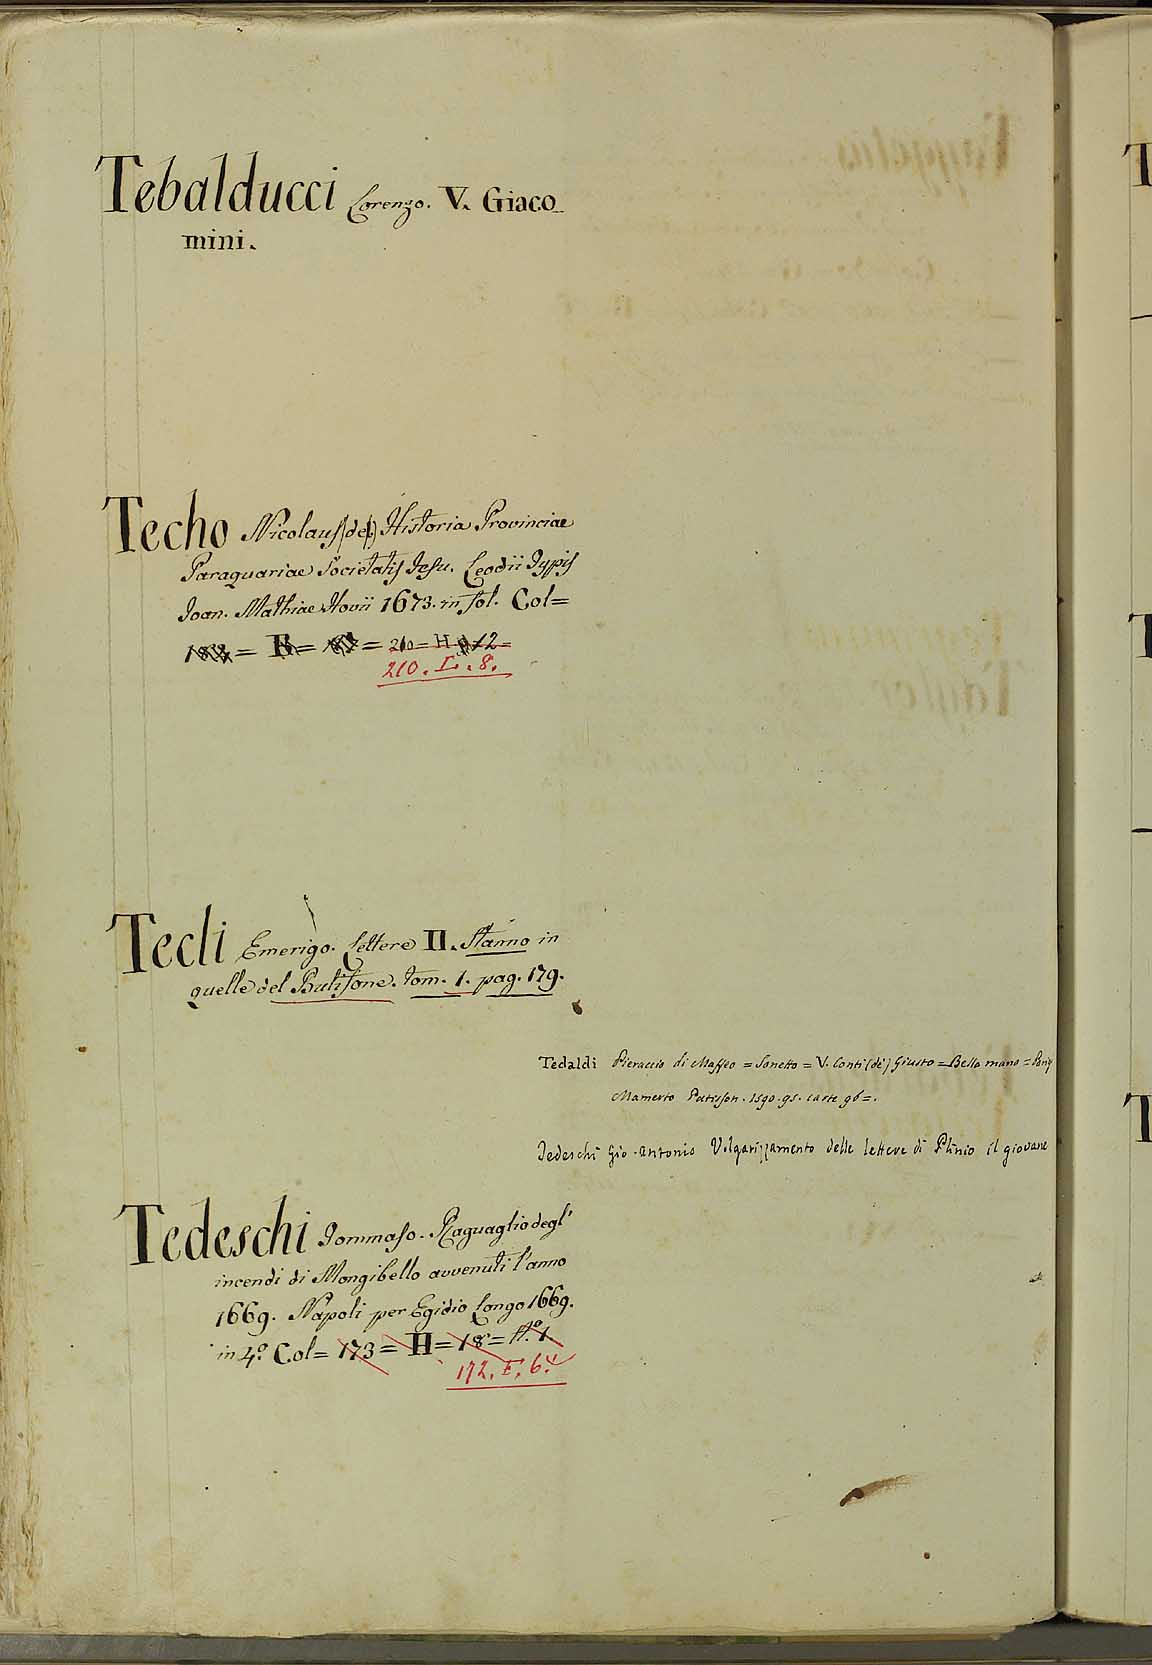 Tebalducci Lorenzo. V. Giaco
mini.
Techo Nicolaus (del) Historia Provinciae
Paraquariae Societatis Jesu. Leodii Typis
Joan. Mathiae Hovii 1673. in fol. Col=
= B= = 210 = H 12=
210. L. 8.
Tecli Emerigo. Lettere II. Stanno in
quelle del Bulifone. tom. 1. pag. 179.
Tedaldi Pieraccio di Maffeo = Sonetto = V. Conti (de') Giusto = Bella mano = Parig
Mamerto Patisson. 1590. 95. carte 96=.
Tedeschi Gio. Antonio Volgarizzamento delle lettere di Plinio il giovane
Tedeschi Tommaso. Raguaglio degl'
incendi di Mongibello avvenuti l'anno
1669. Napoli per Egidio Longo 1669.
in 4.º Col= 173 = H = 18 = n.º 1.
172. F. 6.